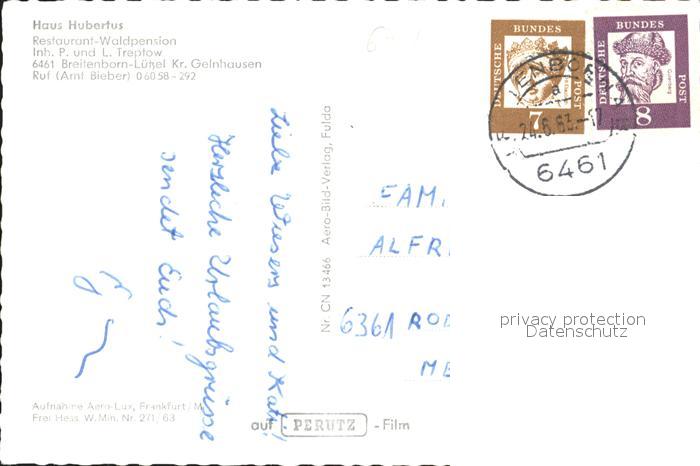 Haus Hubertus
Restaurant-Waldpension
Inh. P. und L. Treptow
6461 Breitenborn-Lützel Kr. Gelnhausen
Ruf (Amt Bieber) 06058-292
Liebe Wiesers und Kati!
Herzliche Urlaubsgrüsse
sendet Euch!
Aufnahme Aero-Lux, Frankfurt/M
Frei Hess. W. Min. Nr. 271/63
Nr. CN 13466 Aero-Bild-Verlag, Fulda
auf PERUTZ -Film
DEUTSCHE BUNDES POST
7
DEUTSCHE BUNDES POST
Gutenberg
8
a
24.6.63.-17
6461
FAM.
ALFR
6361 ROD
ME
privacy protection
Datenschutz